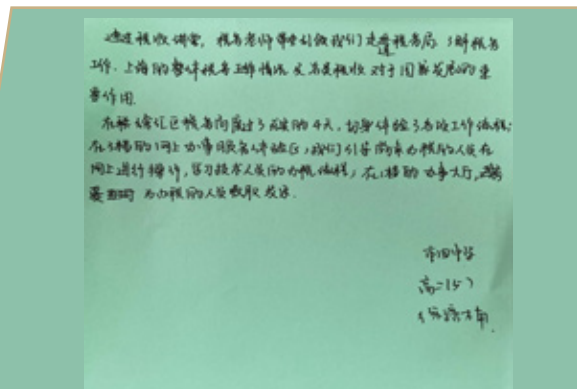 通过税收讲堂，税务老师带领我们走进税务局，了解税务
工作、上海的整体税务工作情况及各类税收对于国家发展的重
要作用
在徐汇区税务局度过了的4天，切身体验了各项工作流程；
在3楼的网上办事服务体验区，我们引导前来办税的人员在
网上进行操作，学习技术人员的办税流程；在1楼的办事大厅，
为办税的人员取发票.
中学
高二(5)